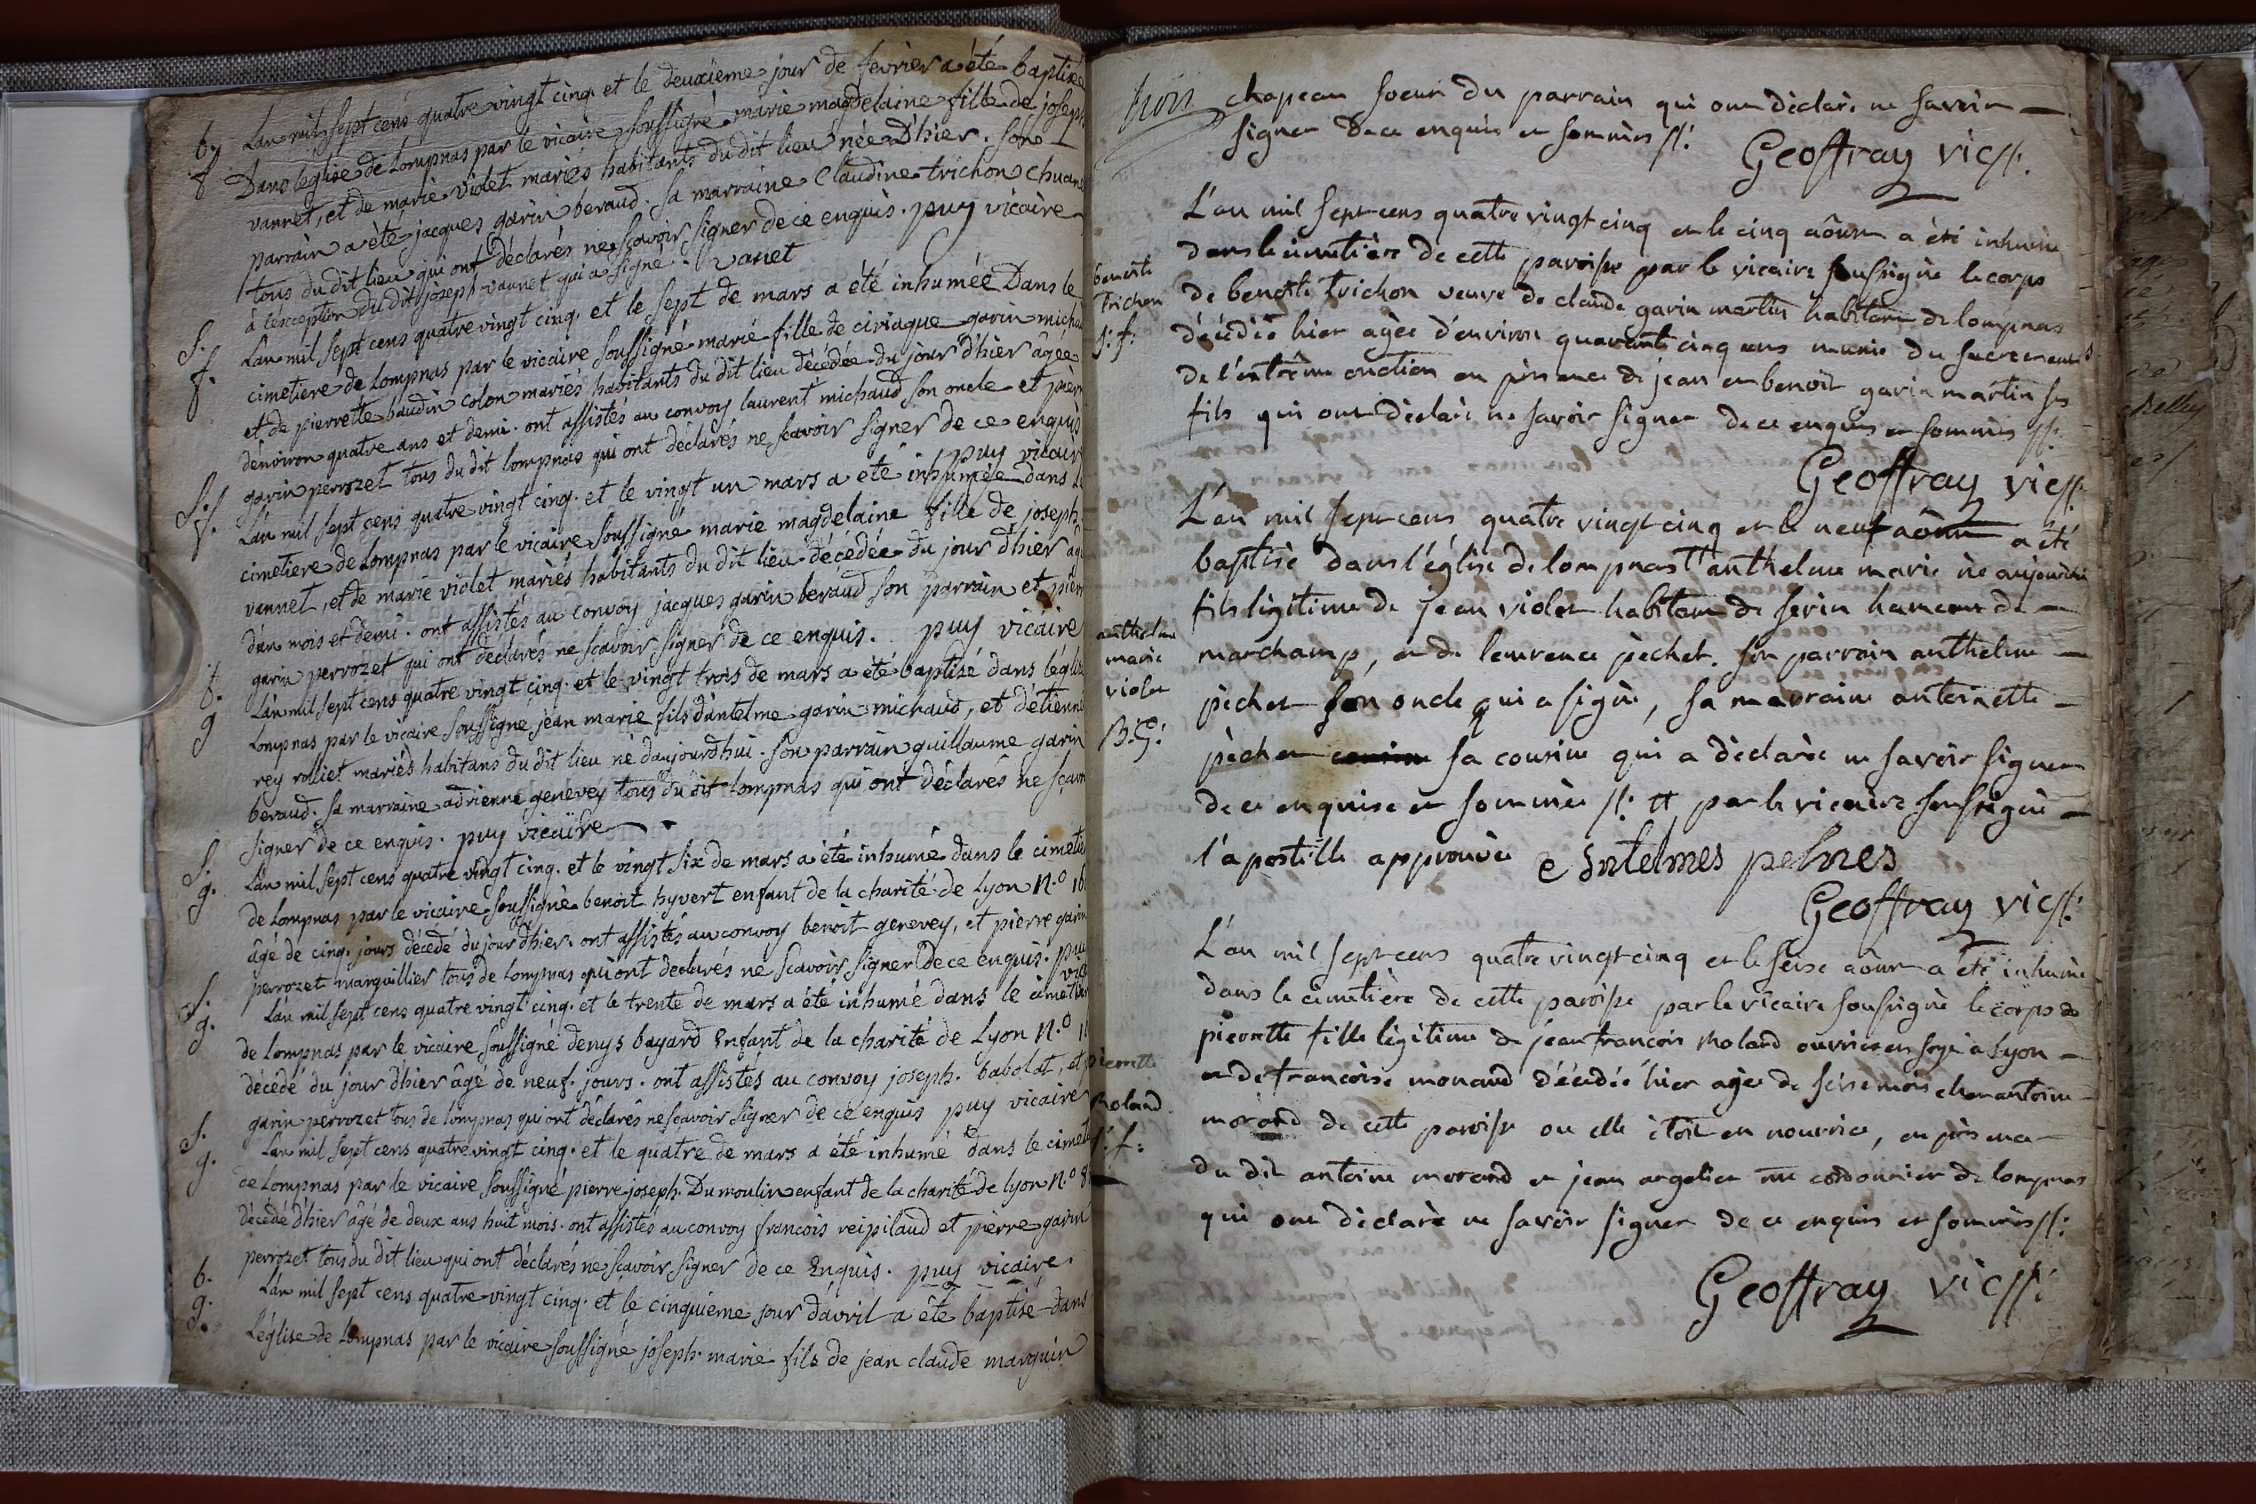 b. Lan mil sept cens quatre vingt cinq. et le deuxieme jour de fevrier a été baptisée
f Dans leglise de Lompnas par le vicaire soussigné marie magdelaine fille de joseph
vannet, et de marie violet mariés habitants du dit lieu née D'hier. Son
parrain a été jacques garin beraud. Sa marraine Claudine trichon
tous du dit lieu qui ont déclarés ne sçavoir signer de ce enquis. puy vicaire
à l'exception du dit joseph vannet qui a signé. vanet
S. Lan mil sept cens quatre vingt cinq. et le sept de mars a été inhumée Dans le
f. cimetiere de Lompnas par le vicaire soussigné marie fille de ciriaque garin michaud
et de pierrette baudin colon mariés habitants du dit lieu décédée du jour d'hier âgée
d'environ quatre ans et demi. ont assistés au convoy laurent michaud son oncle et pierre
garin perrozet tous du dit lompnas qui ont déclarés ne scavoir signer de ce enquis
puy vicaire
S. Lan mil sept cens quatre vingt cinq. et le vingt un mars a eté inhumée dans le
f. cimetiere de Lompnas par le vicaire soussigné marie magdelaine fille de joseph
vannet, et de marie violet mariés habitants du dit lieu décédée du jour d'hier agée
d'un mois et demi. ont assistés au convoy jacques garin beraud son parrain et pierre
garin perrozet qui ont declarés ne sçavoir signer de ce enquis. puy vicaire
b. Lan mil sept cens quatre vingt cinq. et le vingt trois de mars a été baptisé dans léglise
g Lompnas par le vicaire soussigné jean marie fils d'antelme garin michaud, et d'étienne
rey rolliet mariés habitans du dit lieu né d'aujourdhui. son parrain guillaume garin
beraud. sa marraine adrienne genevey tous du dit Lompnas qui ont déclarés ne sçavoir
signer de ce enquis. puy vicaire
S. Lan mil sept cens quatre vingt cinq. et le vingt six de mars a été inhumé dans le cimetiere
g. de Lompnas par le vicaire soussigné benoit hyvert enfant de la charité de Lyon N.º
âgé de cinq. jours décédé du jour d'hier. ont assistés au convoy benoit genevey, et pierre garin
perrozet marguillier tous de Lompnas qui ont declarés ne scavoir signer de ce enquis. puy
S. Lan mil sept cens quatre vingt cinq. et le trente de mars a été inhumé dans le cimetiere
g. de Lompnas par le vicaire soussigné denys bayard Enfant de la charité de Lyon N.º
décédé du jour d'hier âgé de neuf. jours. ont assistés au convoy joseph. babolat, et
garin perrozet tous de lompnas qui ont déclarés ne scavoir signer de ce enquis puy vicaire
S. Lan mil sept cens quatre vingt cinq. et le quatre de mars a été inhumé dans le cimetiere
g. de Lompnas par le vicaire soussigné pierre joseph. Dumoulin enfant de la charité de lyon N.º 8
décédé d'hier âgé de deux ans huit mois. ont assistés au convoy francois reipilaud et pierre garin
perrozet tous du dit lieu qui ont déclarés ne scavoir signer de ce Enquis. puy vicaire.
b. Lan mil sept cens quatre vingt cinq. et le cinquieme jour d'avril a été baptisé dans
g. Léglise de Lompnas par le vicaire soussigné joseph. marie fils de jean claude marguin
trois chapeau soeur du parrain qui ont déclaré ne savoir
signer de ce enquis et sommés ff:
Geoffray vic ff:
L'an mil sept cens quatre vingt cinq et le cinq aôust a été inhumé
dans le cimetière de cette paroisse par le vicaire soussigné le corps
de benoite trichon veuve de claude garin martin habitant de lompnas
décédée hier agée d'environ quarante cinq ans munie du sacrement
de l'extrême onction en présence de jean et benoit garin martin ses
fils qui ont déclaré ne savoir signer de ce enquis et sommés ff:
benoite
trichon
S: f:
Geoffray vic ff:
L'an mil sept cens quatre vingt cinq et le neuf aôust a été
baptisé dans l'église de lompnas tt anthelme marie né aujourdhui
fils légitime de jean violet habitant de serin hameau de
marchamp, et de laurence pèchet. son parrain anthelme
pèchet son oncle qui a signé, sa marraine antoinette
pèchet sa cousine qui a déclarée ne savoir signer
de ce enquise et sommée ff: tt par le vicaire soussigné
l'apostille approuvée
anthelme
marie
violet
B: G:
Geoffray vic ff:
L'an mil sept cens quatre vingt cinq et le seise aôust a été inhumé
dans le cimetière de cette paroisse par le vicaire soussigné le corps de
pierrette fille légitime de jean françois Moland ouvrier en soye à Lyon
et de françoise monaud décédée hier agée de seise mois chez antoine
morand de cette paroisse ou elle étoit en nourrice, en présence
du dit antoine morand et jean argelier cordonnier de lompnas
qui ont déclaré ne savoir signer de ce enquis et sommés ff:
pierrette
Moland
S: f:
Geoffray vic ff: